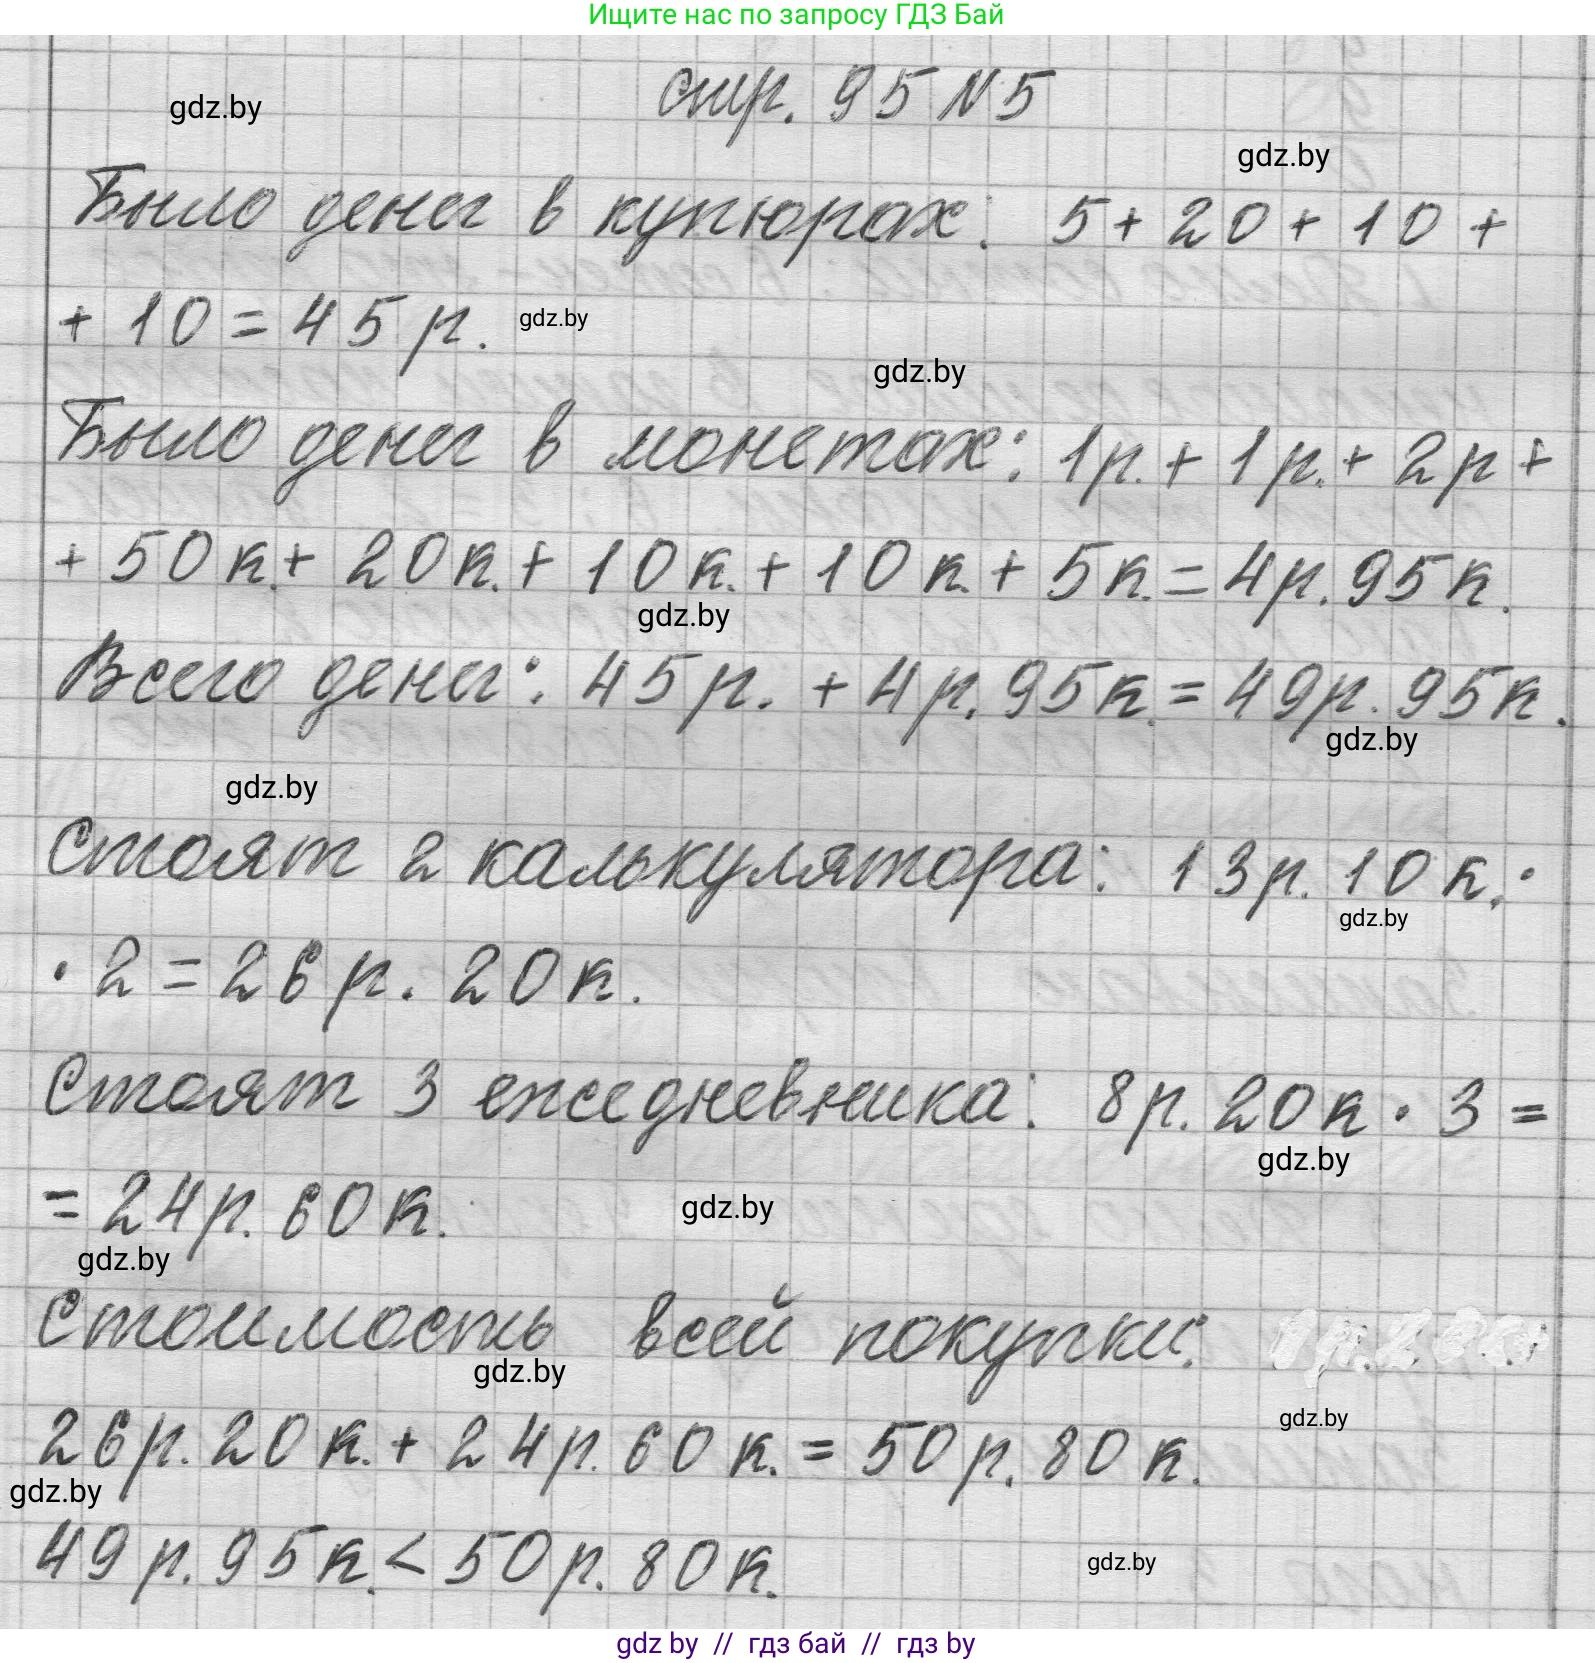 Ищите нас по запросу ГДЗ Бай
стр. 95 N5
gdz.by
gdz.by
Было денег в купюрах: 5 + 20 + 10 +
+ 10 = 45 р.
gdz.by
gdz.by
Было денег в монетах: 1р. + 1р. + 2р +
+ 50к. + 20к. + 10к. + 10к. + 5к. = 4р. 95к.
gdz.by
Всего денег: 45р. + 4р. 95к. = 49р. 95к.
gdz.by
gdz.by
Стоят 2 калькулятора: 13р. 10к. ·
gdz.by
· 2 = 26р. 20к.
Стоят 3 ежедневника: 8р. 20к · 3 =
gdz.by
= 24р. 60к.
gdz.by
gdz.by
Стоимость всей покупки:
gdz.by
gdz.by
26р. 20к. + 24р. 60к. = 50р. 80к.
gdz.by
49р. 95к. < 50р. 80к.
gdz.by
gdz by // гдз бай // гдз by